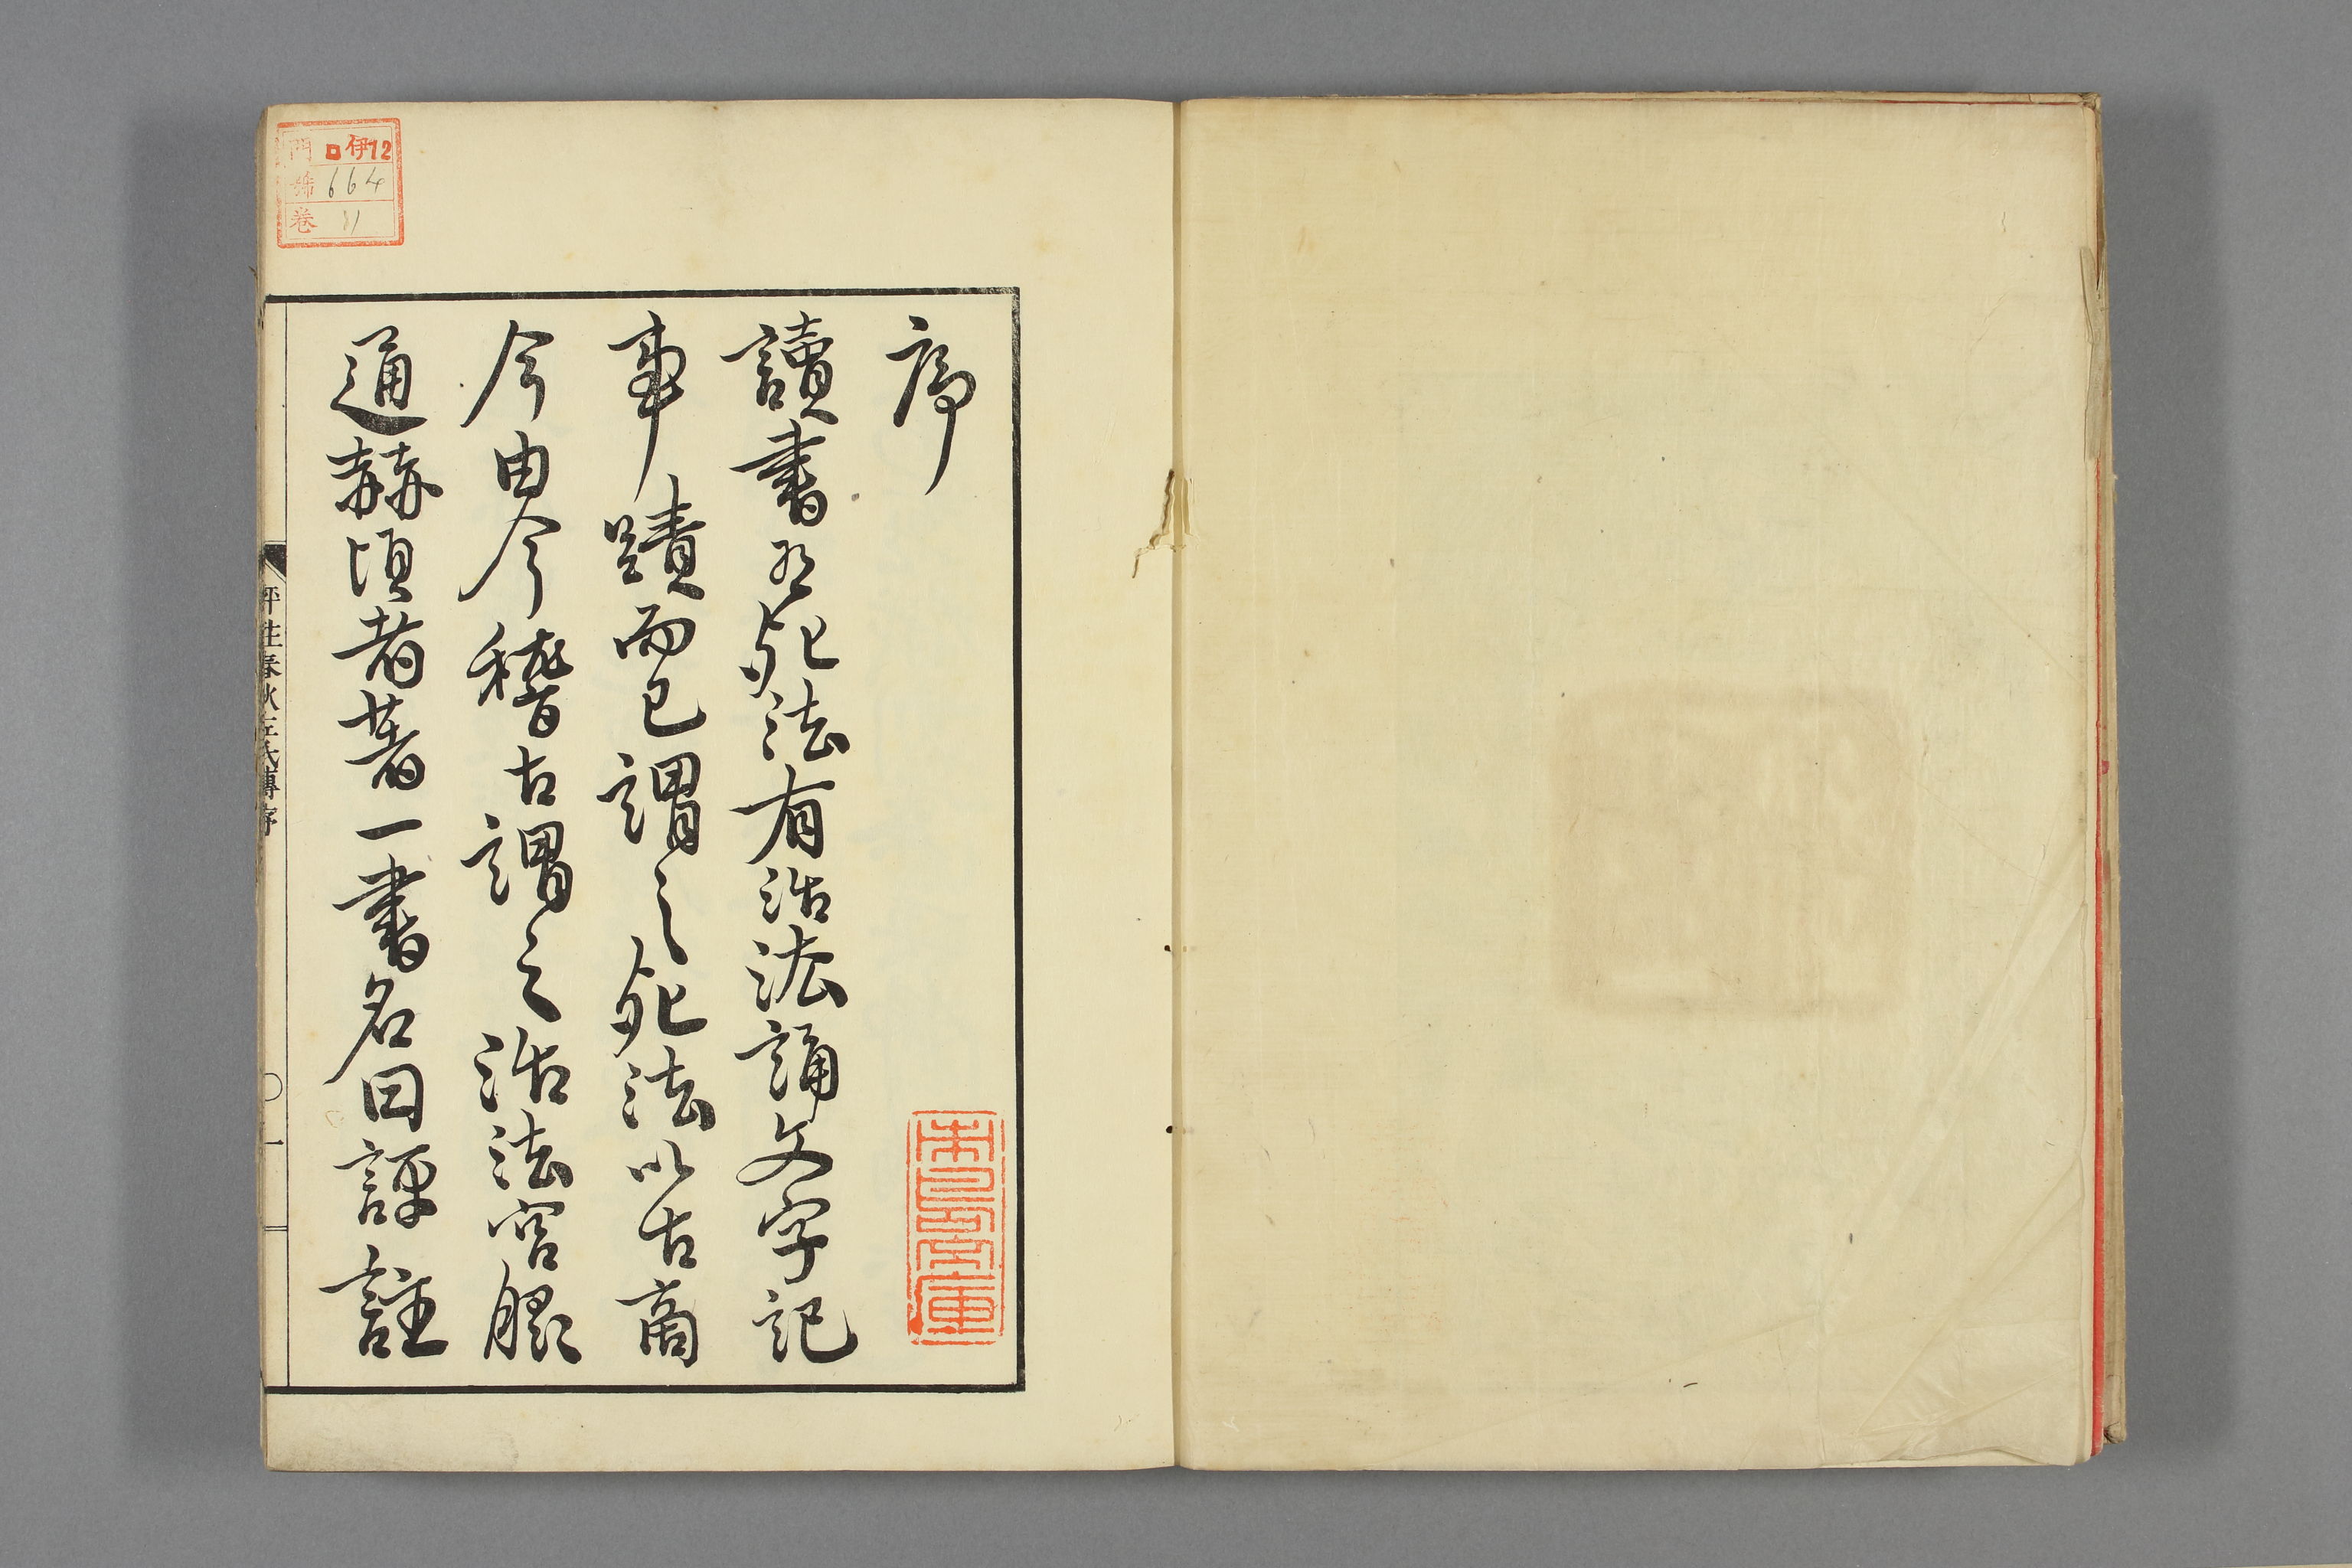 序
讀書有死法有活法誦文字記
事蹟而已謂之死法以古商
今由今稽古謂之活法宮脇
通赫頃者著一書名曰評註
評註春秋左氏傳序
一
門 ロ伊12
號 664
卷